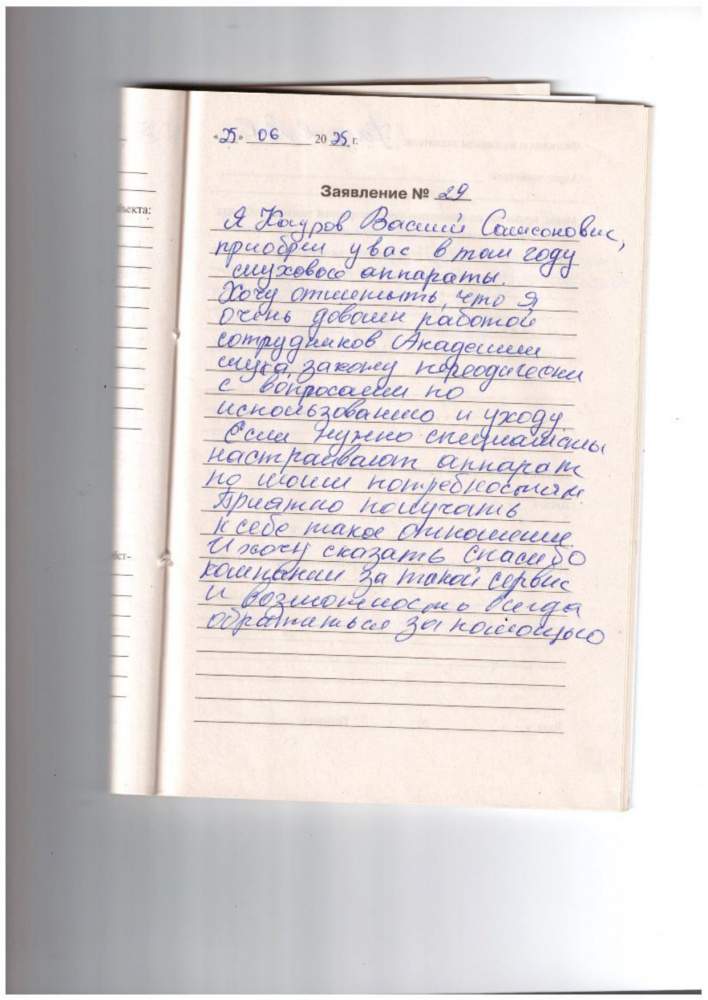 «25» 06 20 25 г.
Заявление № 29
Я Кауров Васили Самсонович,
приобрел у вас в том году
слуховые аппараты.
Хочу отметить, что я
очень доволен работой
сотрудников Академии
слуха, захожу переодически
с вопросами по
использованию и уходу
Если нужно специалисты
настраивают аппарат
по моим потребностям
Приятно получать
к себе такое отношение
И хочу сказать спасибо
компании за такой сервис
и возможность всегда
обратиться за помощью
бъекта: